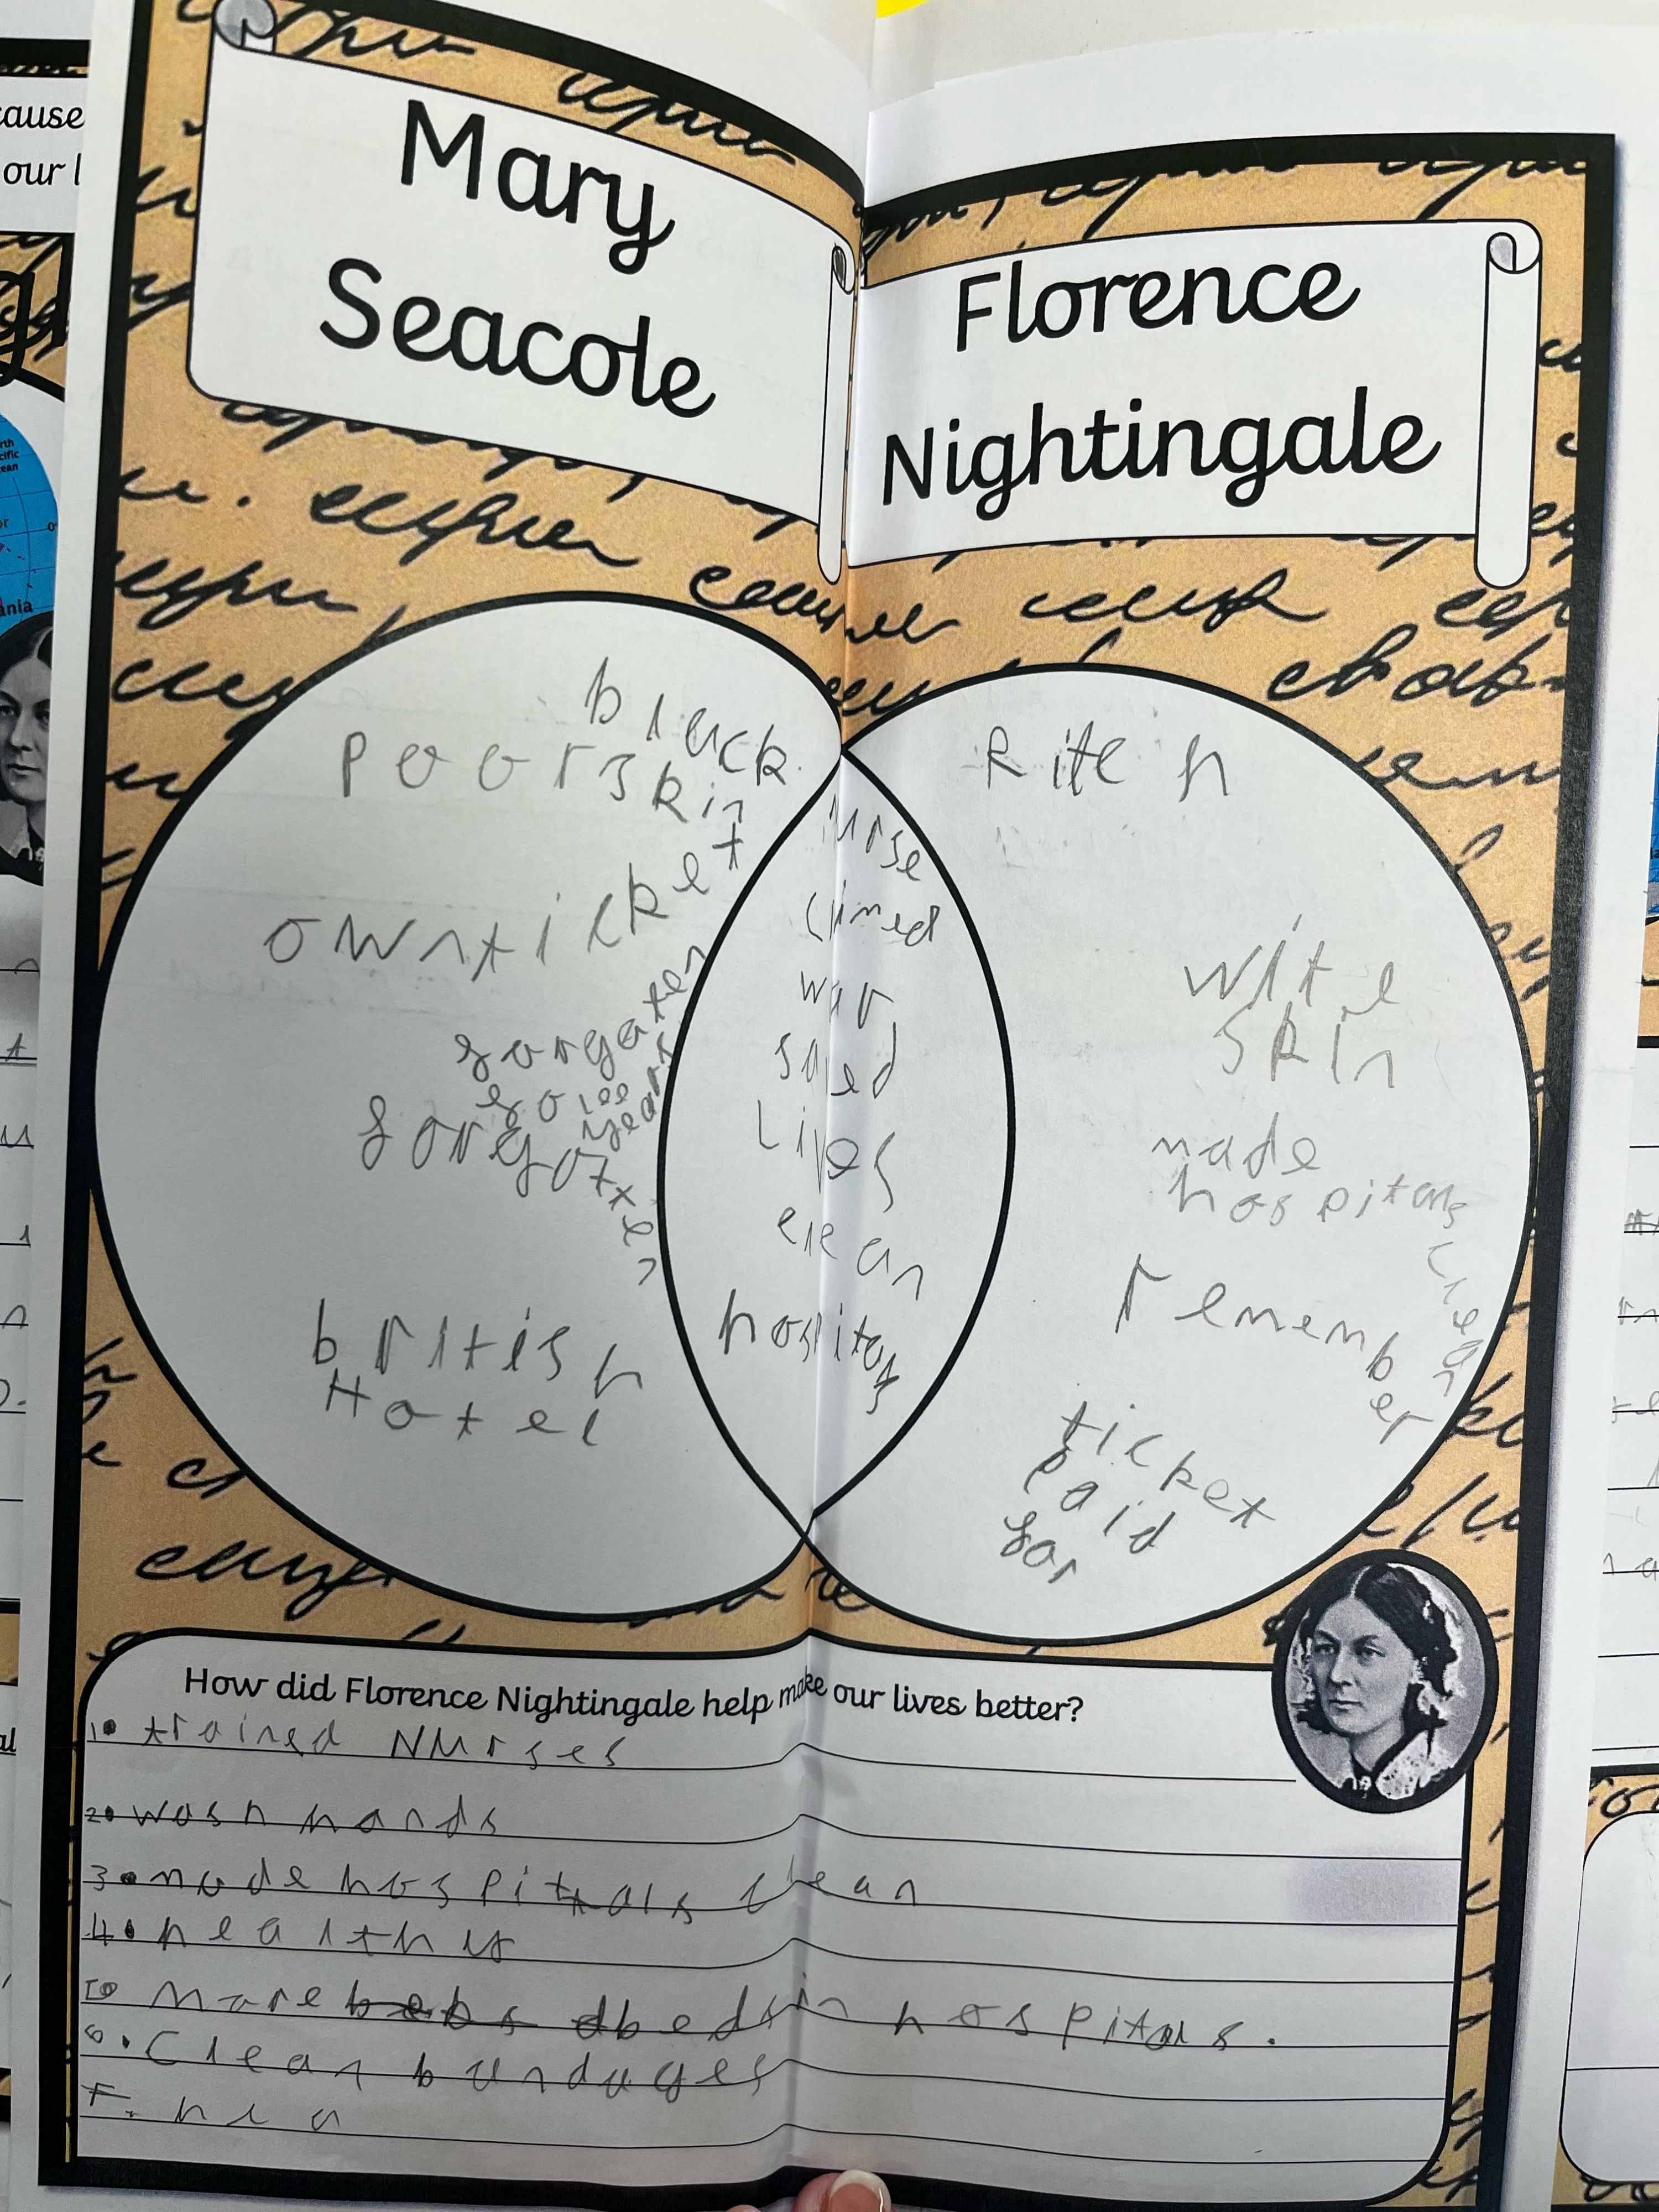 cause
our l
Mary
Seacole
Florence
Nightingale
black
poor skin
own ticket
forgaten
for 100
years
forgotten
british
Hotel
nurse
war
saed
Lives
clean
hospitals
Ritch
wite
skin
made
hospitals
clean
remember
ticket
paid
for
How did Florence Nightingale help make our lives better?
1. trained Nurses
2. wash hands
3. made hospitals clean
4. healthy
more beds in hospitals.
Clean bandages
hea